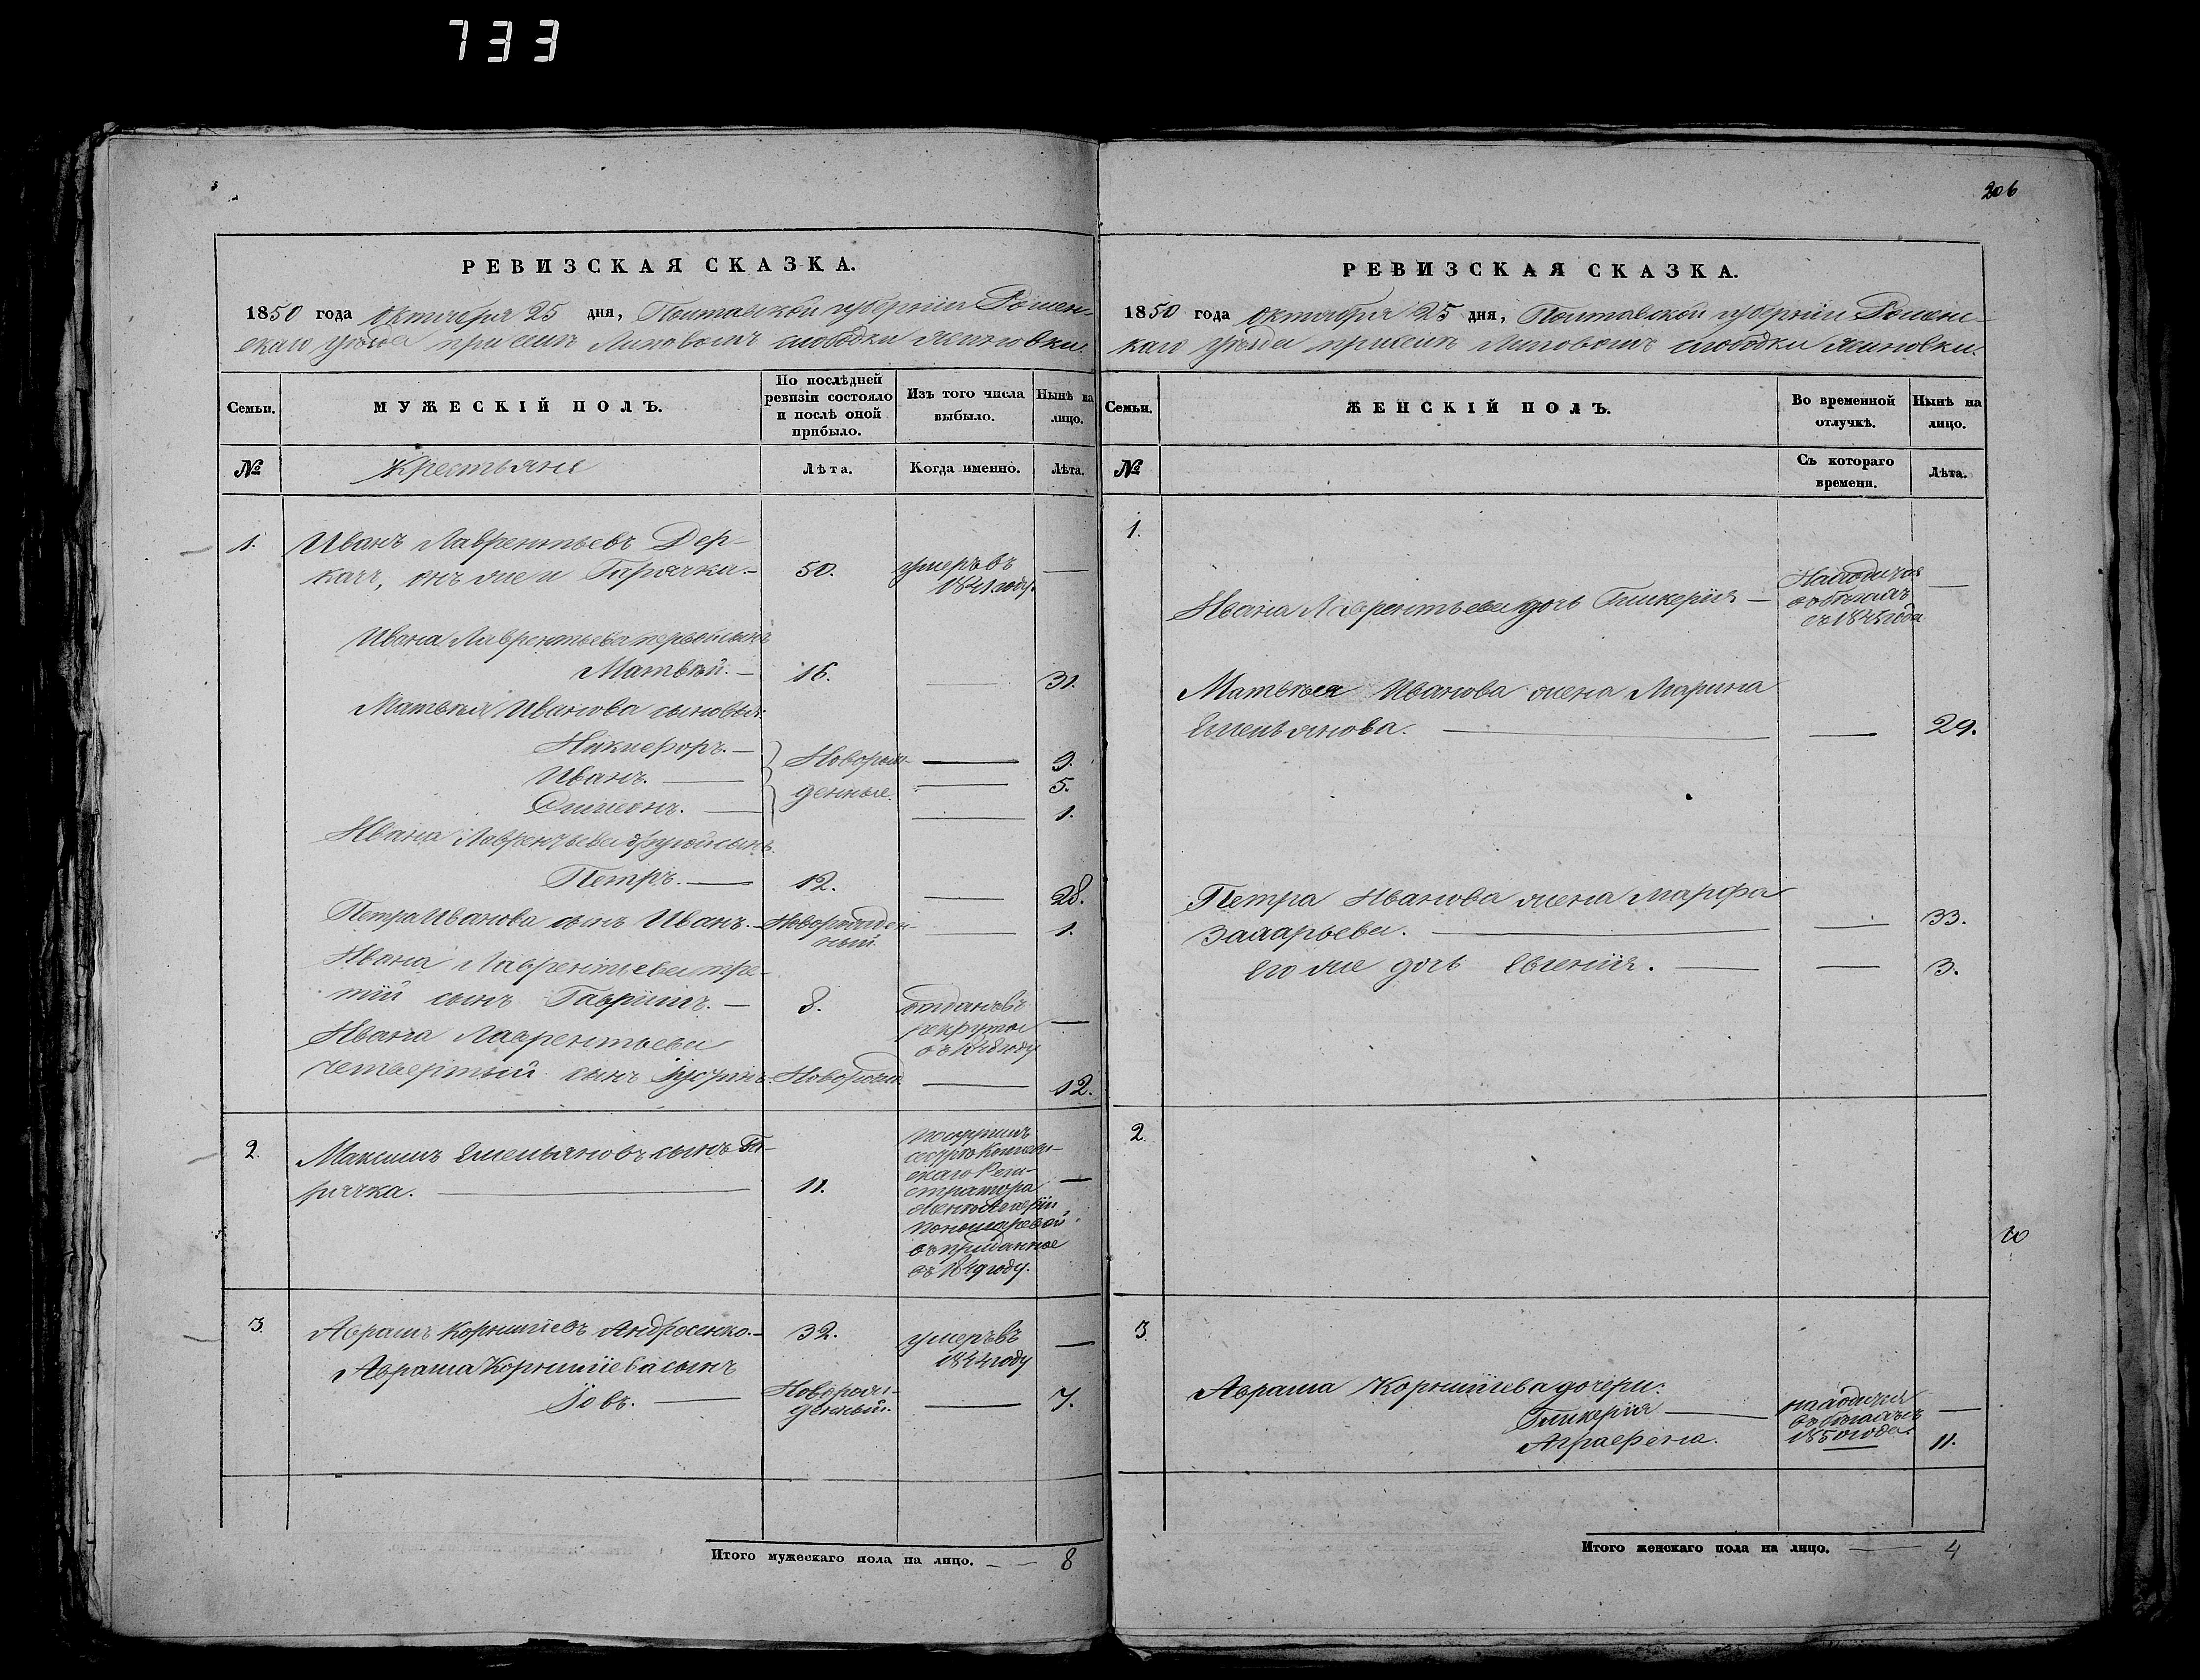 733
206
РЕВИЗСКАЯ СКАЗКА.
1850 года Октября 25 дня, Полтавской губернiи Ромен-
скаго уѣзда при селѣ Липовомъ слободки Ясиновки.
Семьи.
МУЖЕСКІЙ ПОЛЪ.
По послѣдней
ревизіи состояло
и послѣ оной
прибыло.
Изъ того числа
выбыло.
Нынѣ на
лицо.
№
Крестьяне
Лѣта.
Когда именно.
Лѣта.
1. Иванъ Лаврентьевъ Дер-
качъ, онъ же и Гарячка. — 50. умеръ въ —
1841 году.
Ивана Лаврентьева первый сынъ
Матвѣй. — 16. — 31.
Матвѣя Иванова сыновья:
Никифоръ. — Новорож- — 9.
Иванъ. — денные. — 5.
Симеонъ. — — 1.
Ивана Лаврентьева другой сынъ
Петръ. — 12. — 28.
Петра Иванова сынъ Иванъ. — Новорожден- — 1.
ный.
Ивана Лаврентьева тре-
тій сынъ Гавріилъ. — 8. отданъ въ
рекруты —
въ 1848 году
Ивана Лаврентьева
четвертый сынъ Іустинъ. Новорожд. — 12.
2. Максимъ Емельяновъ сынъ Га-
рячка. — 11. —
Поступилъ
Реги-
стратора
Пономаревой
въ приданное
въ 1849 году.
3. Аврамъ Корниліевъ Андросенко. — 32. умеръ въ —
1844 году
Аврама Корниліева сынъ
Іовъ. — Новорож- — 7.
денный.
Итого мужескаго пола на лицо. — — 8
РЕВИЗСКАЯ СКАЗКА.
1850 года Октября 25 дня, Полтавской губерніи Ромен-
скаго уѣзда при селѣ Липовомъ слободки Ясиновки.
Семьи.
ЖЕНСКІЙ ПОЛЪ.
Во временной
отлучкѣ.
Нынѣ на
лицо.
№
Съ котораго
времени.
Лѣта.
1.
Ивана Лаврентьева дочь Гликерія — Находится —
въ бѣгахъ
съ года
Матвѣя Иванова жена Марина
Емельянова. — — 29.
Петра Иванова жена Марфа
Захарьева. — — 33.
Его же дочь Евгенія. — — 3.
2.
3.
Аврама Корниліева дочери:
Гликерія — находится —
въ бѣгахъ съ
Аграфена. 1850 года. 11.
Итого женскаго пола на лицо. — 4